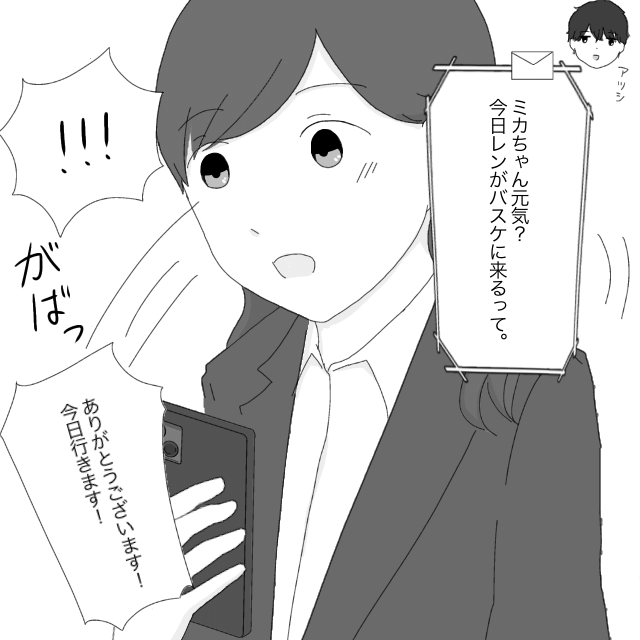 アツシ
ミカちゃん元気?
今日レンがバスケに来るって。
!!!
がばっ
ありがとうございます!
今日行きます!